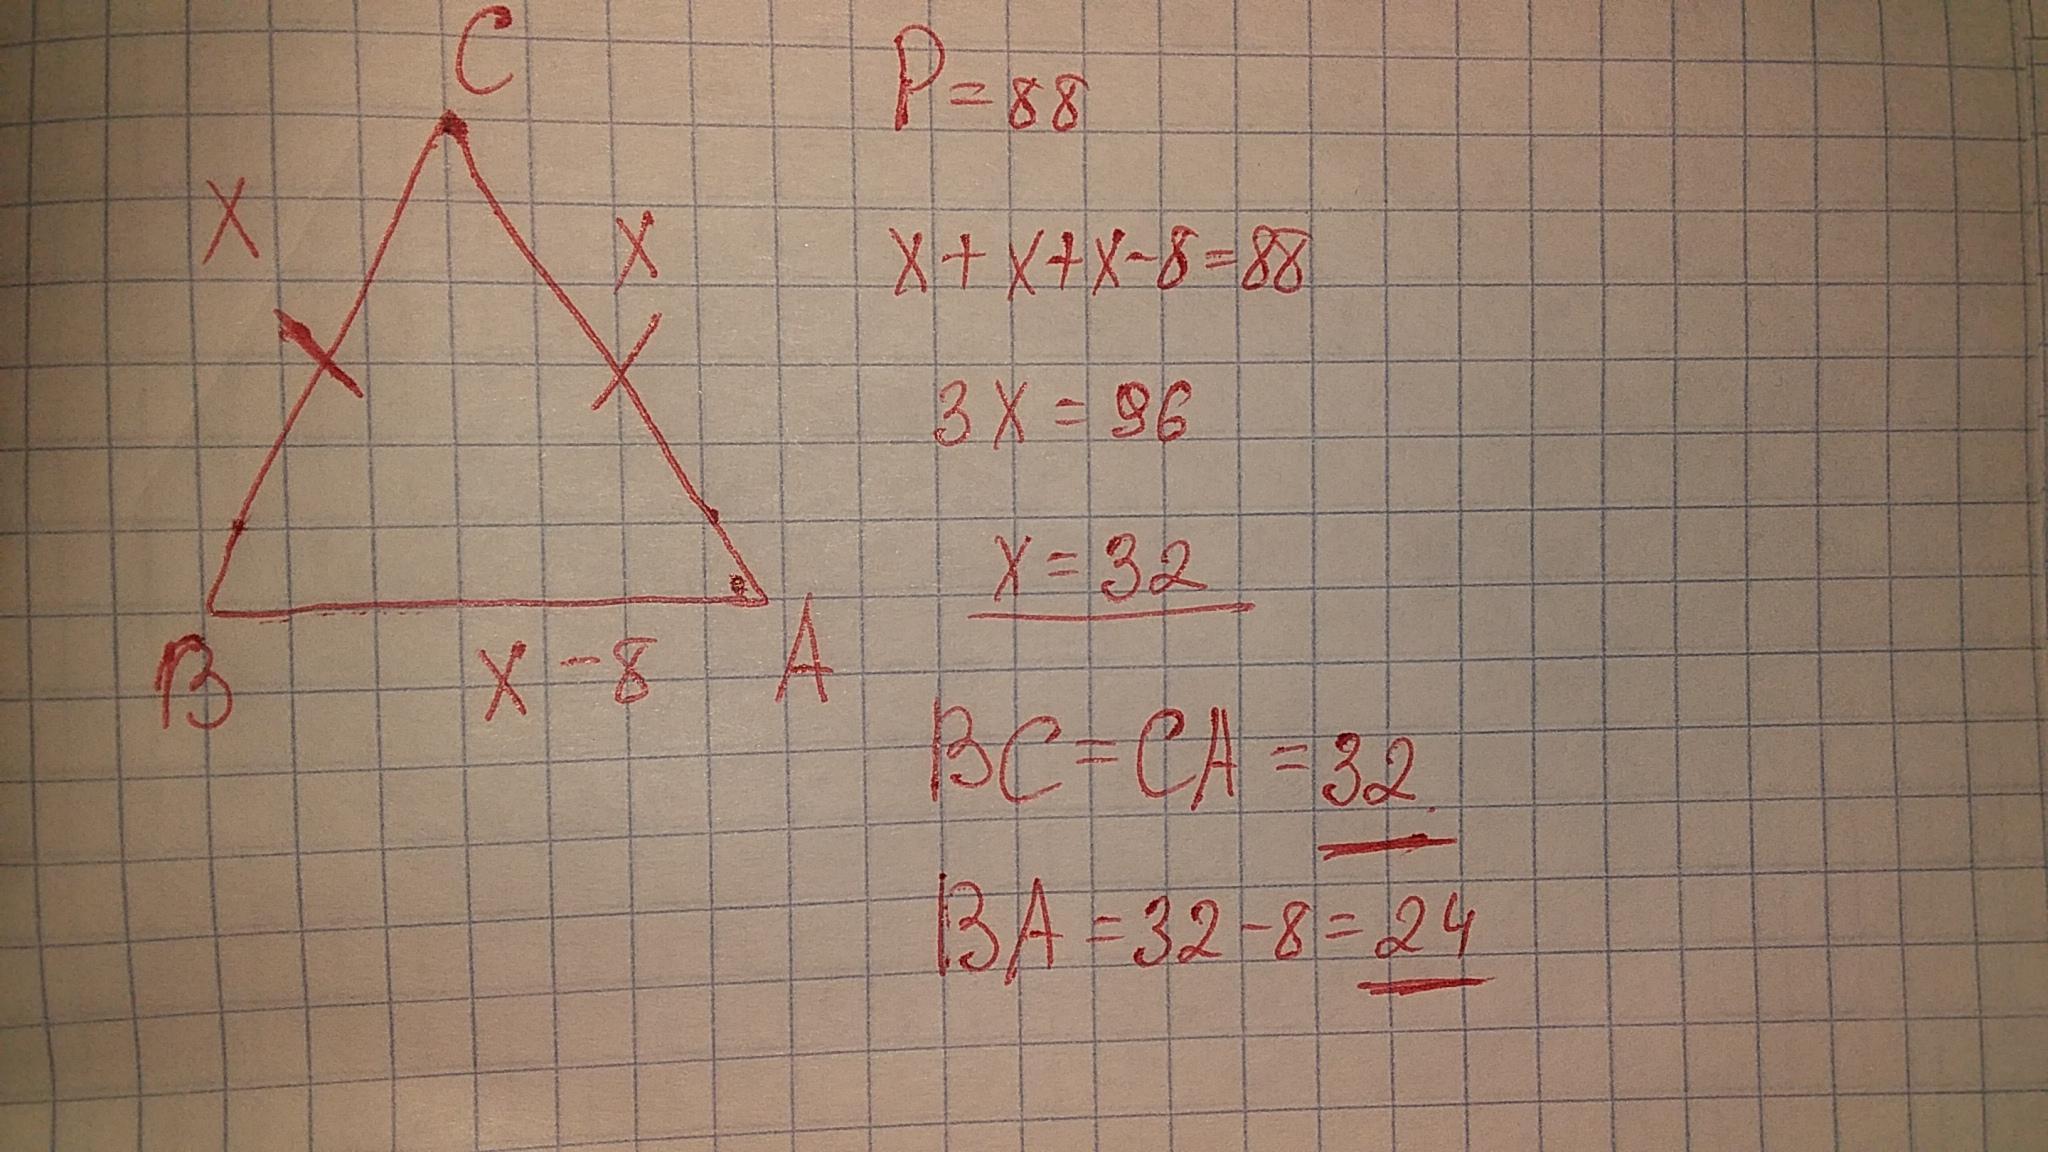 C
P = 88
X
X
X + X + X - 8 = 88
3X = 96
X = 32
B
X - 8
A
BC = CA = 32
BA = 32 - 8 = 24